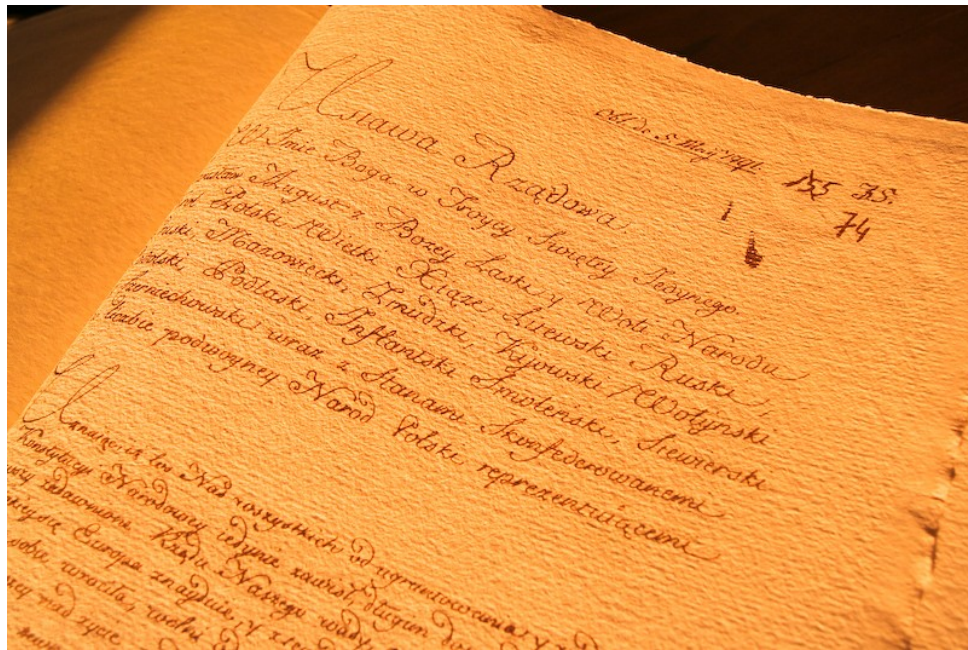 Obl. de 5. Maij 1791.
155 JS.
74
Ustawa Rządowa
W Imie Boga w Troycy Swiętey Jedynego.
August z Bozey Łaski y Woli Narodu
Polski, Wielki Xiąże Litewski, Ruski,
Mazowiecki, Zmudzki, Kijowski, Wołyński
Podlaski Inflantski Smoleński, Siewierski
Czerniechowski; wraz z Stanami Skonfederowanemi
liczbie podwoyney Naród Polski reprezentuiącemi
Uznaiąc, iż los Nas wszystkich od ugruntowania y
Konstytucyi Narodowey iedynie zawisł, długiem
zadawnione Rządu Naszego wady,
Europa znayduie, y
sobie wróciła, wolni
nad życie